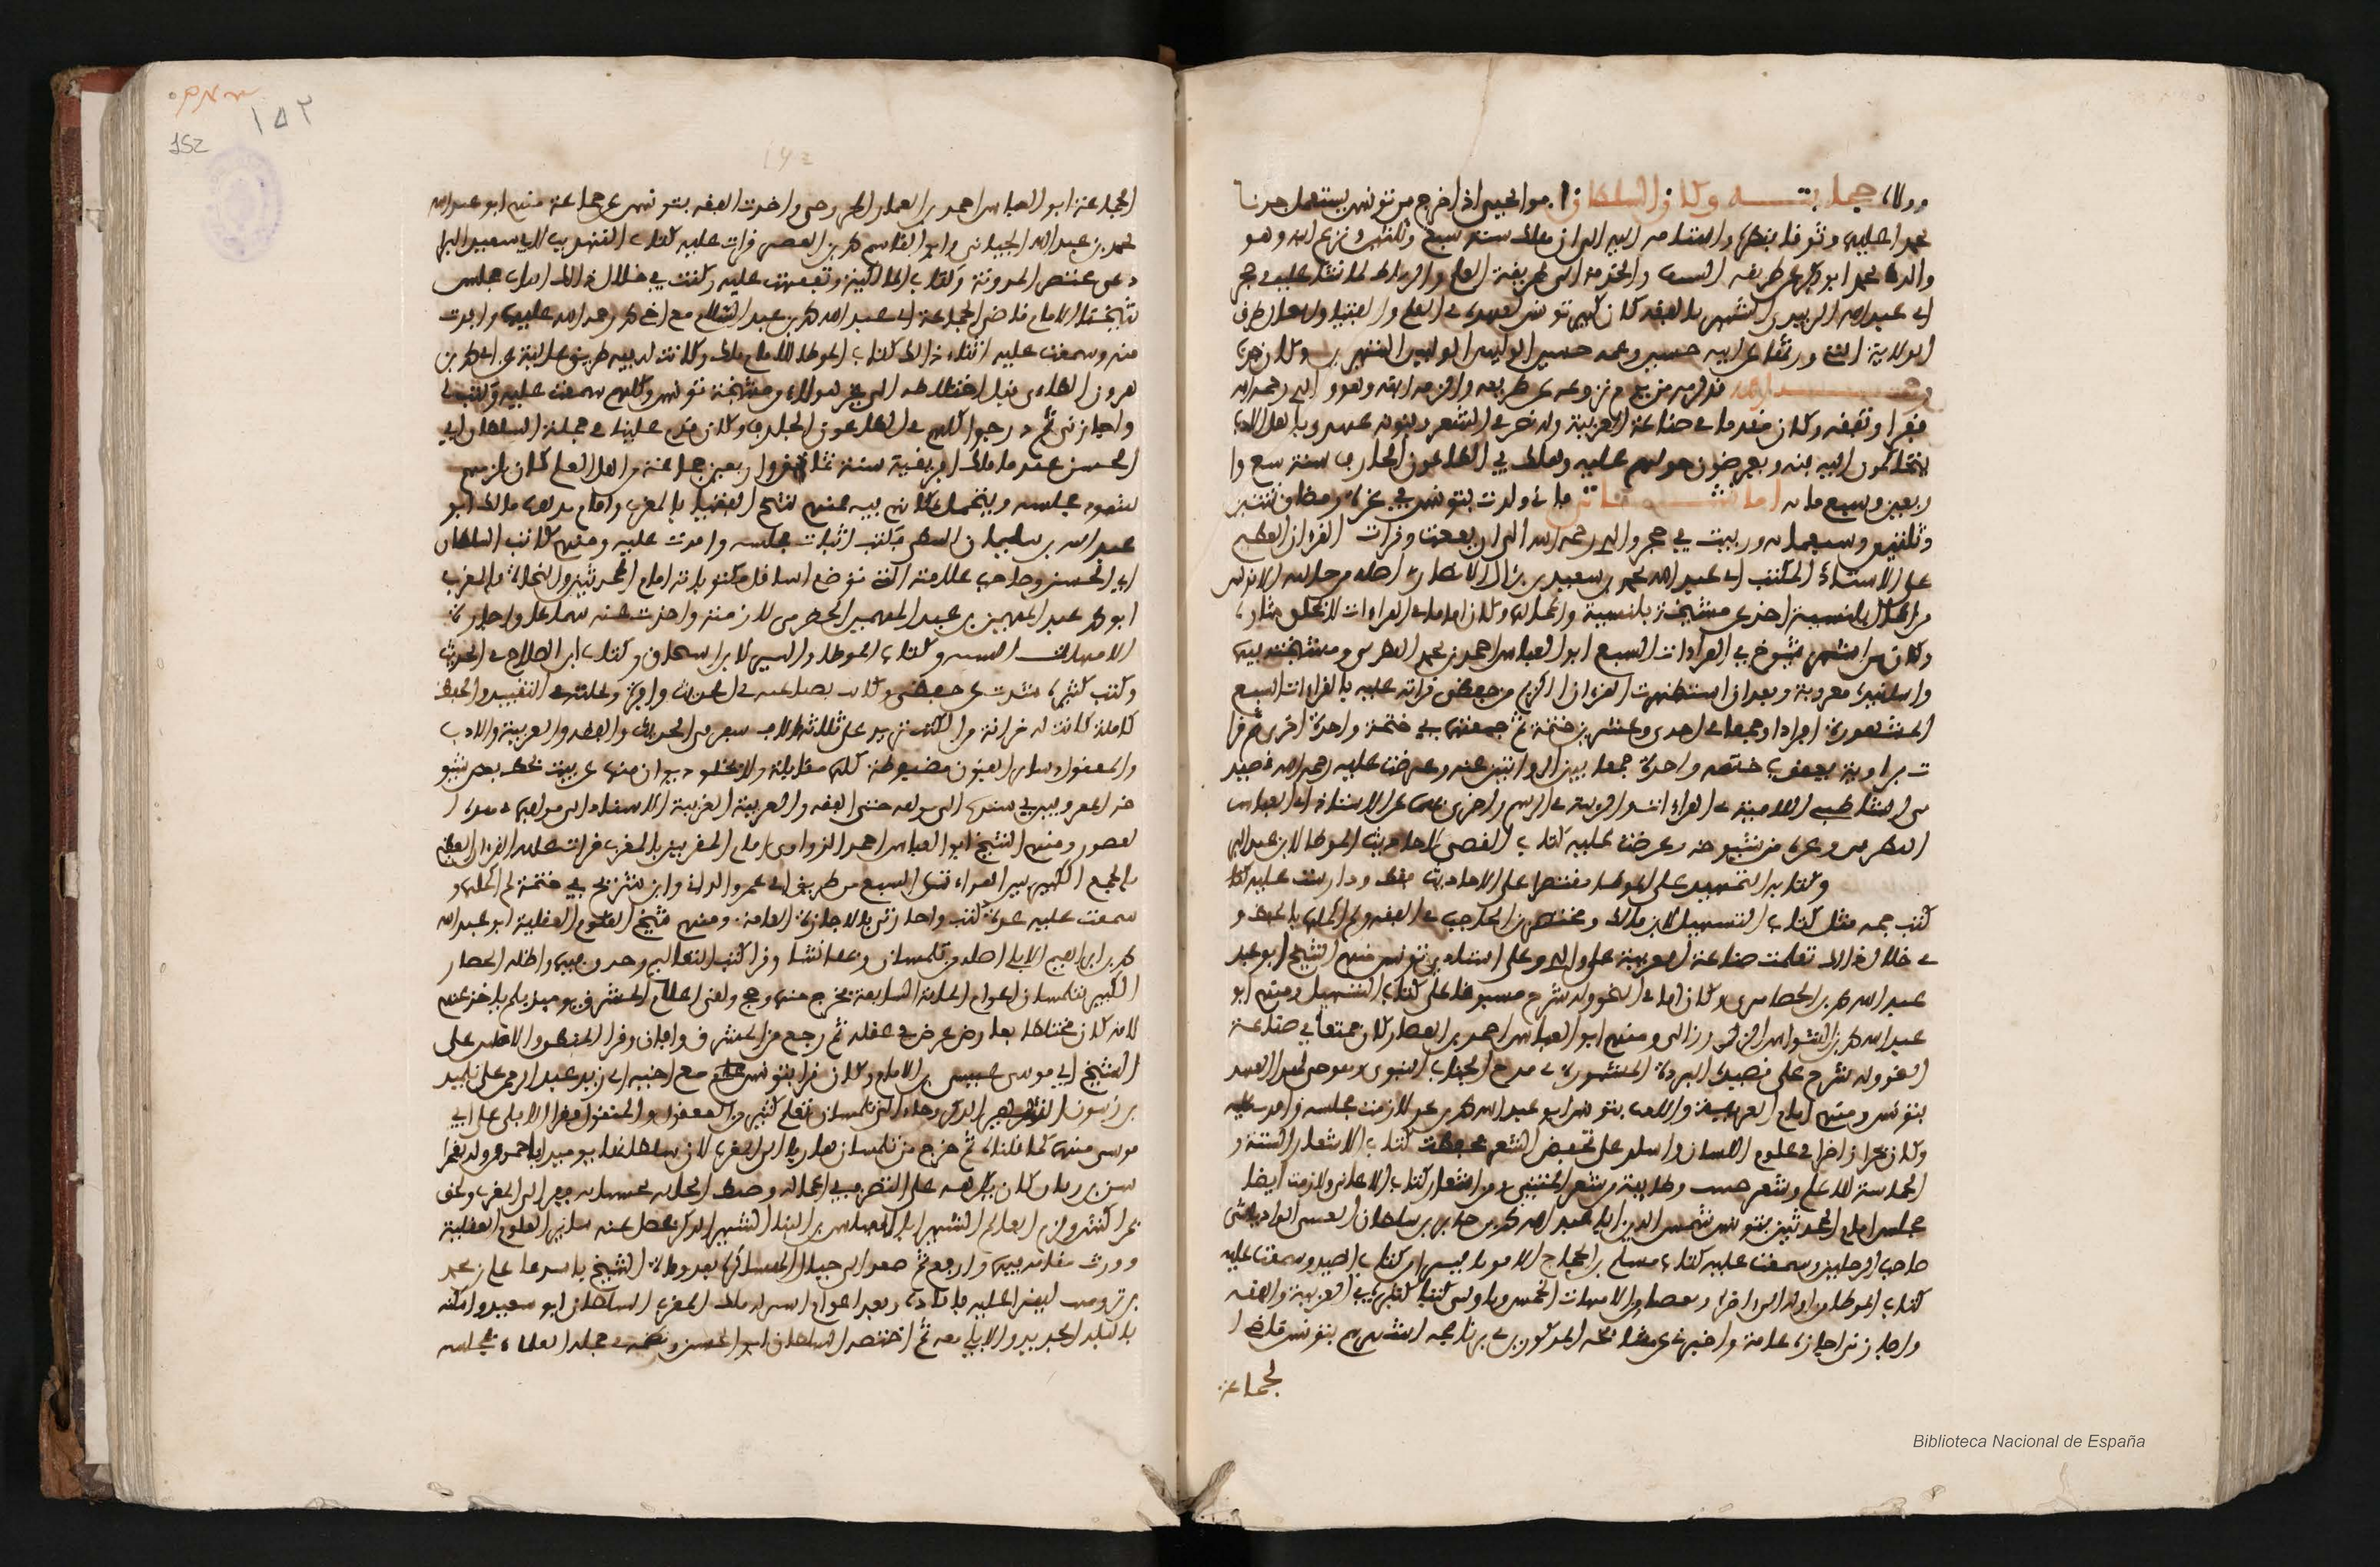 وولاه حجابته وكان السلطان ابو يحيى اذا خرج من تونس يستعمل جدنا
محمدا عليها وثوقا بنظره واستنامة اليه الى ان هلك سنة سبع وثلثين ونزع ابنه وهو
والدي محمد ابو بكر عن طريقة السيف والخدمة الى طريقة العلم والرباط لما نشا عليه في حجر
ابي عبد الله الزبيدي الشهير بالفقيه كان كبير تونس لعهده في العلم والفتيا وانتحال طرق
الولاية التي ورثها عن ابيه حسين وعمه حسن الوليين الشهيرين وكان جدي
رحمه الله قد لازمه من يوم نزوعه عن طريقه والزمه ابنه وهو والدي رحمه الله
فقرا وتفقه وكان مقدما في صناعة العربية وله بصر في الشعر وفنونه عهدي باهل الادب
يتحاكمون اليه فيه ويعرضون حوكهم عليه وهلك في الطاعون الجارف سنة تسع وا
ربعين وسبع مائة اما نشاتي فاني ولدت بتونس في غرة رمضان سنة اثنين
وثلثين وسبعمائة وربيت في حجر والدي رحمه الله الى ان يفعت وقرات القران العظيم
على الاستاذ المكتب ابي عبد الله محمد بن سعيد بن برال الانصاري اصله من جالية الاندلس
من اعمال بلنسية اخذ عن مشيخة بلنسية واعمالها وكان اماما في القراءات لا يلحق شاوه
وكان من اشهر شيوخه في القراءات السبع ابو العباس احمد بن محمد البطرني ومشيخته فيها
واسانيده معروفة وبعد ان استظهرت القران الكريم من حفظي قراته عليه بالقراءات السبع
المشهورة افرادا وجمعا في احدى وعشرين ختمة ثم جمعتها في ختمة واحدة اخرى ثم قرا
ت برواية يعقوب ختمة واحدة جمعا بين الروايتين عنه وعرضت عليه رحمه الله قصيد
تي الشاطبي اللامية في القراءات والرائية في الرسم واخبرني بهما عن الاستاذ ابي العباس
البطرني وغيره من شيوخه وعرضت عليه كتاب التقصي لاحاديث الموطا لابن عبد البر
وكتابه التمهيد على الموطا مقتصرا على الاحاديث فقط ودارست عليه كتبا
كتب جمة مثل كتاب التسهيل لابن مالك ومختصر ابن الحاجب في الفقه ولم اكملها بالحفظ و
في خلال ذلك تعلمت صناعة العربية على والدي وعلى استاذي تونس منهم الشيخ ابو عبد
عبد الله محمد بن العربي الحصايري وكان اماما في النحو وله شرح مستوفى على كتاب التسهيل ومنهم ابو
عبد الله محمد بن الشواش الزرزالي ومنهم ابو العباس احمد بن القصار كان ممتعا في صناعة
النحو وله شرح على قصيدة البردة المشهورة في مدح الجناب النبوي وهو حي لهذا العهد
بتونس ومنهم امام العربية والادب بتونس ابو عبد الله محمد بن بحر لازمت مجلسه وافدت عليه
وكان بحرا زاخرا في علوم اللسان واشار على بحفظ الشعر فحفظت كتاب الاشعار الستة و
الحماسة للاعلم وشعر حبيب وطائفة من شعر المتنبي ومن اشعار كتاب الاغاني ولازمت ايضا
مجلس امام المحدثين بتونس شمس الدين ابي عبد الله محمد بن جابر بن سلطان القيسي الوادياشي
صاحب الرحلتين وسمعت عليه كتاب مسلم بن الحجاج الا فوتا يسيرا من كتاب الصيد وسمعت عليه
كتاب الموطا من اوله الى اخره وبعضا من الامهات الخمس وناولني كتبا كثيرة في العربية والفقه
واجازني اجازة عامة واخبرني عن مشايخه المذكورين في برنامجه اشهرهم بتونس قاضي ا
لجماعة
الجماعة ابو العباس احمد بن الغماز الخزرجي واخذت الفقه بتونس عن جماعة منهم ابو عبد الله
محمد بن عبد الله الجياني وابو القاسم محمد بن القصير قرات عليه كتاب التهذيب لابي سعيد البرا
دعي مختصر المدونة وكتاب المالكية وتفقهت عليه وكنت في خلال ذلك انتاب مجلس
شيخنا الامام قاضي الجماعة ابي عبد الله محمد بن عبد السلام مع اخي محمد رحمة الله عليهما وافدت
منه وسمعت عليه اثناء ذلك كتاب الموطا للامام مالك وكانت له فيه طرق عالية عن ابي محمد بن
هرون الطائي قبل اختلاطه الى غير هولاء من مشيخة تونس وكلهم سمعت عليه وكتب لي
واجازني ثم درجوا كلهم في الطاعون الجارف وكان قدم علينا في جملة السلطان ابي
الحسن عند ما ملك افريقية سنة ثمان واربعين جماعة من اهل العلم كان يلزمهم
شهود مجلسه ويتجمل بمكانهم فيه فمنهم شيخ الفتيا بالمغرب وامام مذهب مالك ابو
عبد الله بن سليمان السطي فكنت انتاب مجلسه وافدت عليه ومنهم كاتب السلطان
ابي الحسن وصاحب علامته التي توضع اسافل مكتوباته امام المحدثين والنحاة بالمغرب
ابو محمد عبد المهيمن بن عبد المهيمن الحضرمي لازمته واخذت عنه سماعا واجازة
الامهات الست وكتاب الموطا والسير لابن اسحاق وكتاب ابن الصلاح في الحديث
وكتب كثيرة شذت عن حفظي وكانت بضاعته في الحديث وافرة ونحلته في التقييد والحفظ
كاملة كانت له خزانة من الكتب تزيد على ثلثة الاف سفر في الحديث والفقه والعربية والادب
والمعقول وساير الفنون مضبوطة كلها مقابلة ولا يخلو ديوان منها عن ثبت بخط بعض شيو
خه المعروفين في سنده الى مولفه حتى الفقه والعربية الغريبة الاسناد الى مولفيها في هذه ا
لعصور ومنهم الشيخ ابو العباس احمد الزواوي امام المقريين بالمغرب قرات عليه القران العظيم
بالجمع الكبير بين القراءات السبع من طريق ابي عمرو الداني وابن شريح في ختمة لم اكملها و
سمعت عليه عدة كتب واجازني بالاجازة العامة ومنهم شيخ العلوم العقلية ابو عبد الله
محمد بن ابراهيم الابلي اصله من تلمسان وبها نشا وقرا كتب التعاليم وحذق فيها واظله الحصار
الكبير بتلمسان اعوام الماية السابعة فخرج منها وحج ولقي اعلام المشرق يوميذ فلم ياخذ عنهم
لانه كان مختلطا بعارض عرض في عقله ثم رجع من المشرق وافاق وقرا المنطق والاصلين على
الشيخ ابي موسى عيسى بن الامام وكان قرا بتونس مع اخيه ابي زيد عبد الرحمن على تلميذ
بن زيتون الشهير الذكر وجاء الى تلمسان بعلم كثير من المعقول والمنقول فقرا الابلي على ابي
موسى منهما كما قلناه ثم خرج من تلمسان هاربا الى المغرب لان سلطانها يوميذ ابا حمو من ولد يغمرا
سن بن زيان كان يكرهه على التصرف في اعماله وضبط الجباية بحسبانه ففر الى المغرب ولحق
بمراكش ولزم العالم الشهير ابا العباس بن البنا الشهير الذكر فحصل عنه ساير العلوم العقلية
وورث مقامه فيها وارفع ثم صعد الى جبال الهساكرة بعد وفاة الشيخ باستدعا علي بن محمد
بن تروميت ليقرا عليه فافاده وبعد اعوام استنزله ملك المغرب السلطان ابو سعيد واسكنه
بالبلد الجديد والابلي معه ثم اختصه السلطان ابو الحسن ونظمه في جملة العلماء بمجلسه
152
١٥٢
Biblioteca Nacional de España